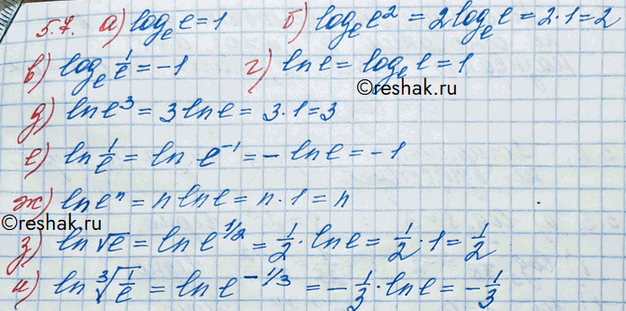 5.7. а) log_e e = 1 б) log_e e² = 2 log_e e = 2·1 = 2
в) log_e 1/e = -1 г) ln e = log_e e = 1
©reshak.ru
д) ln e³ = 3 ln e = 3·1 = 3
е) ln 1/e = ln e⁻¹ = - ln e = -1
ж) ln eⁿ = n ln e = n·1 = n
©reshak.ru
з) ln √e = ln e^(1/2) = 1/2 · ln e = 1/2 · 1 = 1/2
и) ln ∛(1/e) = ln e^(-1/3) = -1/3 · ln e = -1/3